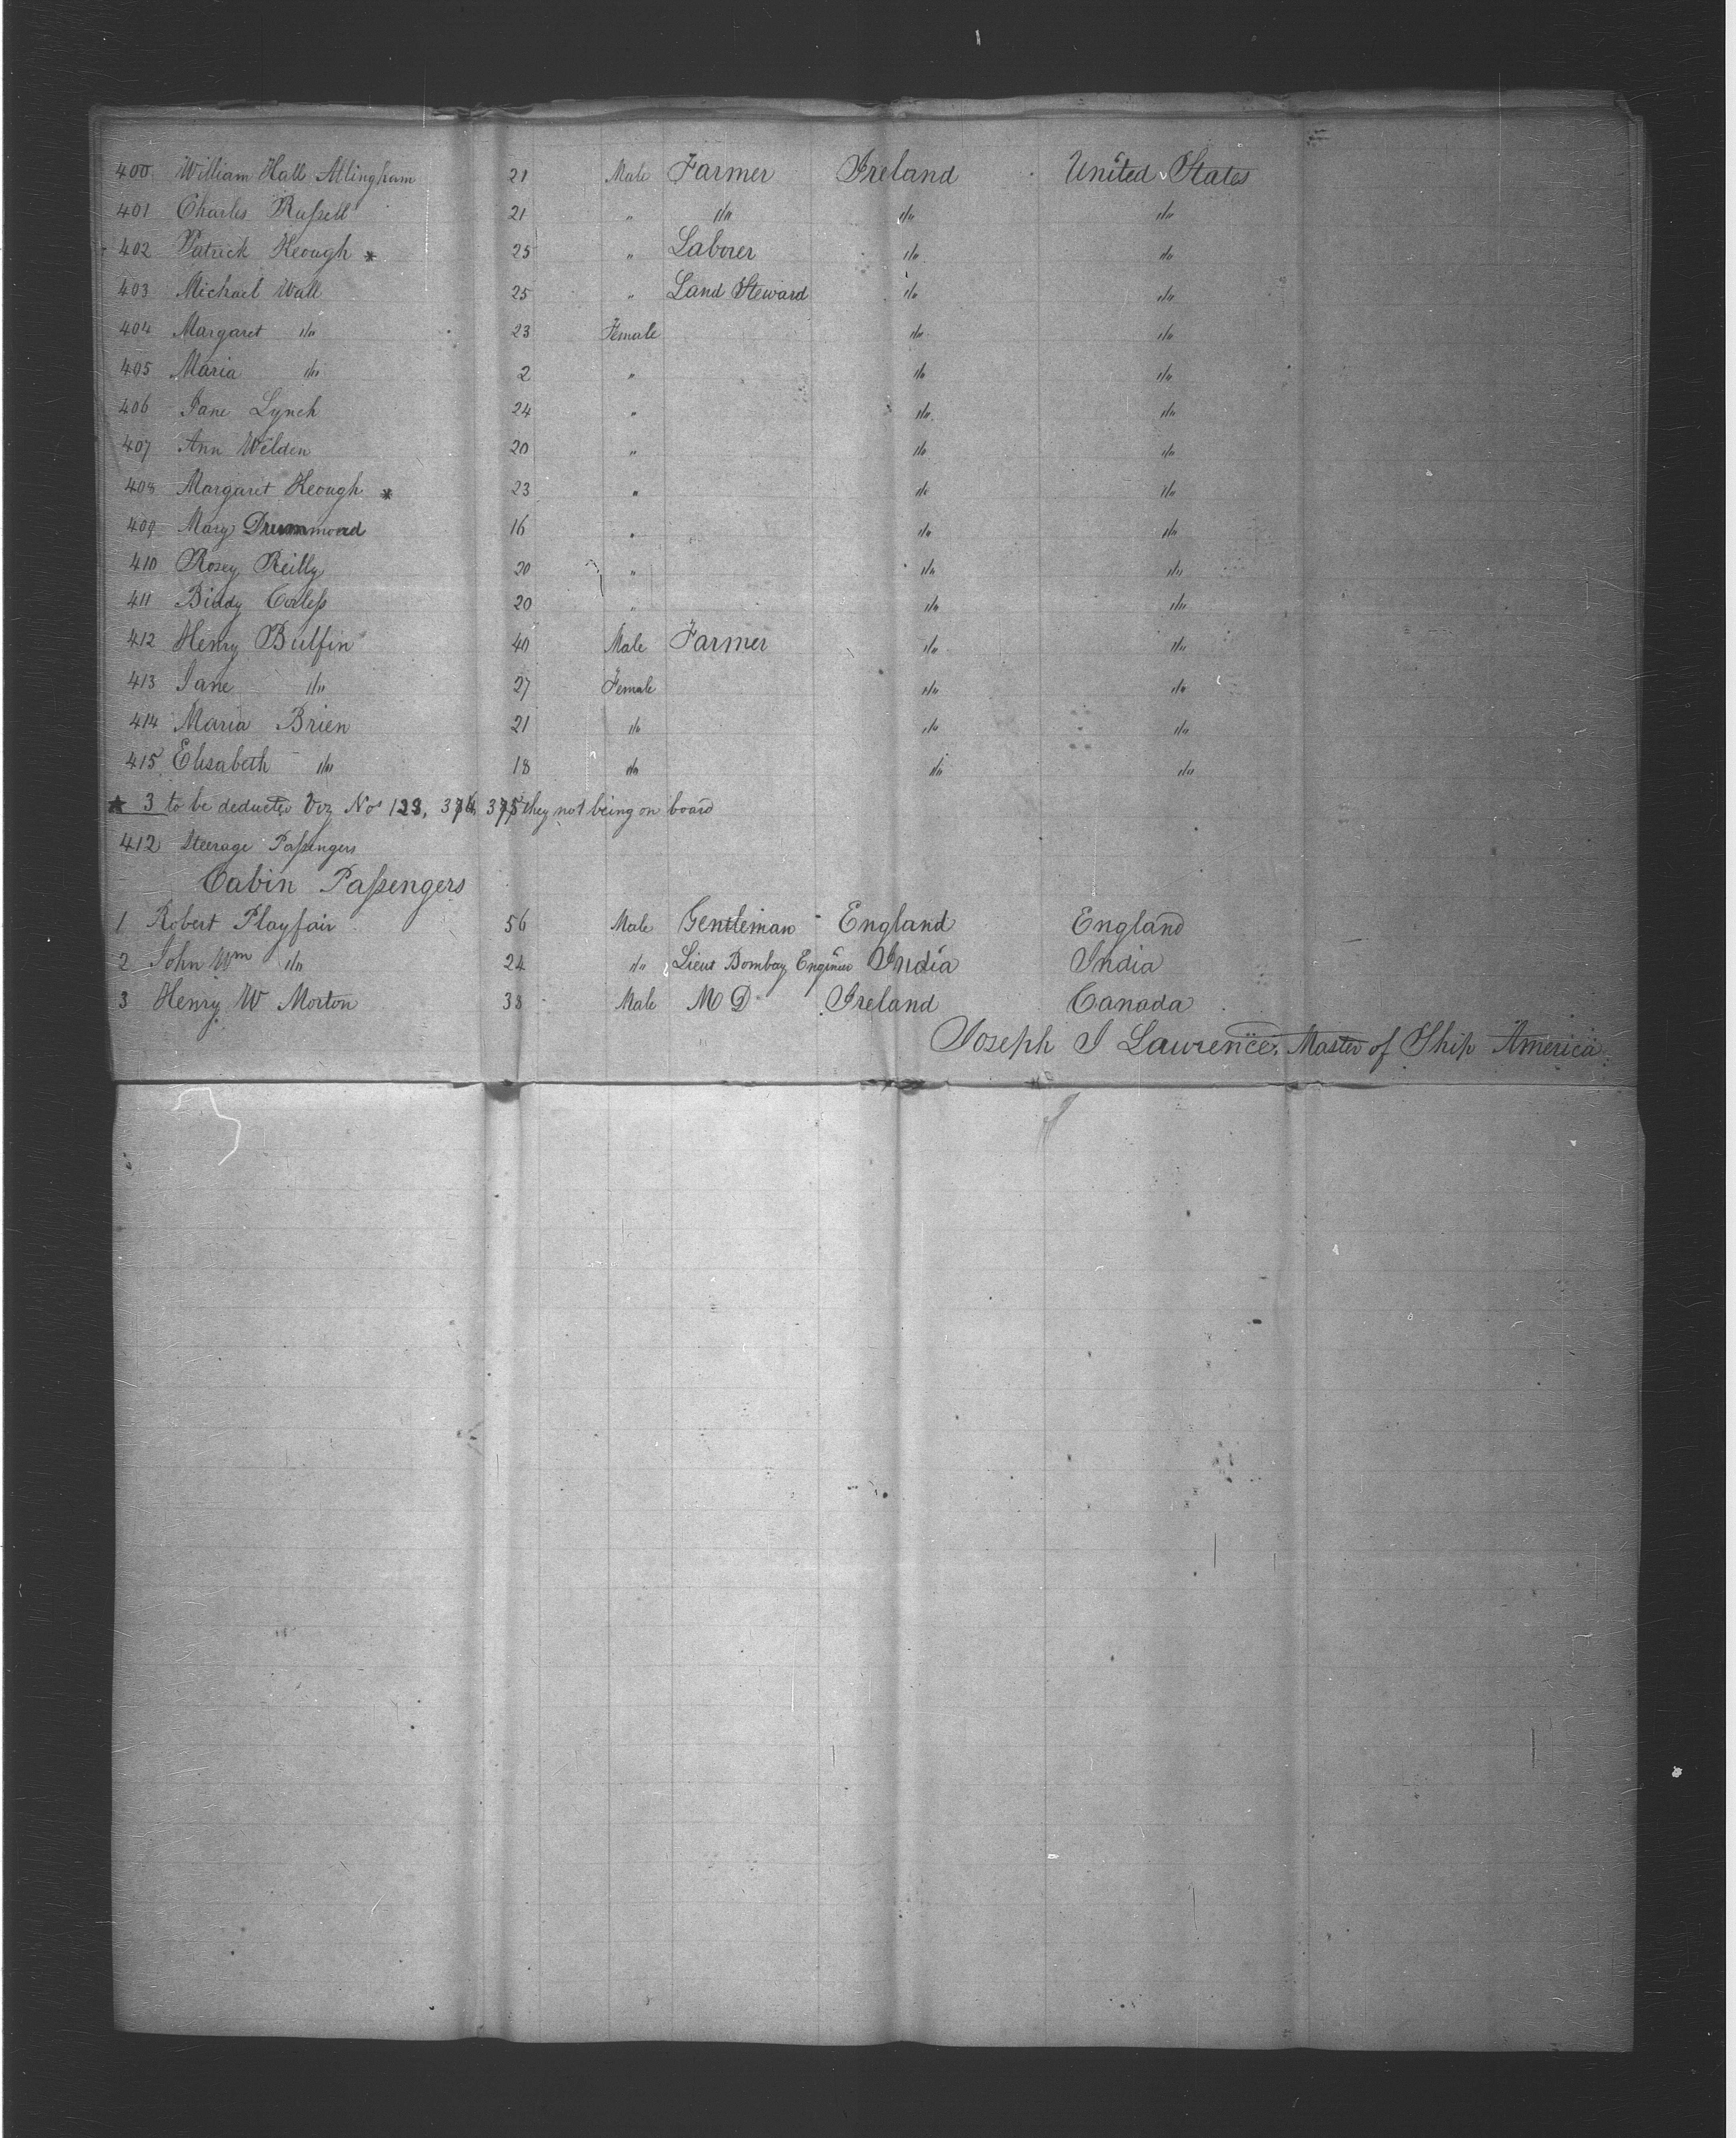 400 William Hall Allingham 21 Male Farmer Ireland United States
401 Charles Rufsell 21 " do do do
402 Patrick Keough * 25 " Laborer do do
403 Michael Wall 25 " Land Steward do do
404 Margaret do 23 Female do do
405 Maria do 2 " do do
406 Jane Lynch 24 " do do
407 Ann Wilden 20 " do do
408 Margaret Keough * 23 " do do
409 Mary Drummond 16 " do do
410 Rosey Reilly 20 " do do
411 Biddy Corlefs 20 " do do
412 Henry Bulfin 40 Male Farmer do do
413 Jane do 27 Female do do
414 Maria Brien 21 do do do
415 Elisabeth do 18 do do do
* 3 to be deducted Viz Nos 123, 374, 375 they not being on board
412 Steerage Pafsengers
Cabin Pafsengers
1 Robert Playfair 56 Male Gentleman England England
2 John Wm do 24 do Lieut Bombay Engineer India India
3 Henry W Morton 38 Male M D Ireland Canada
Joseph J Lawrence, Master of Ship America